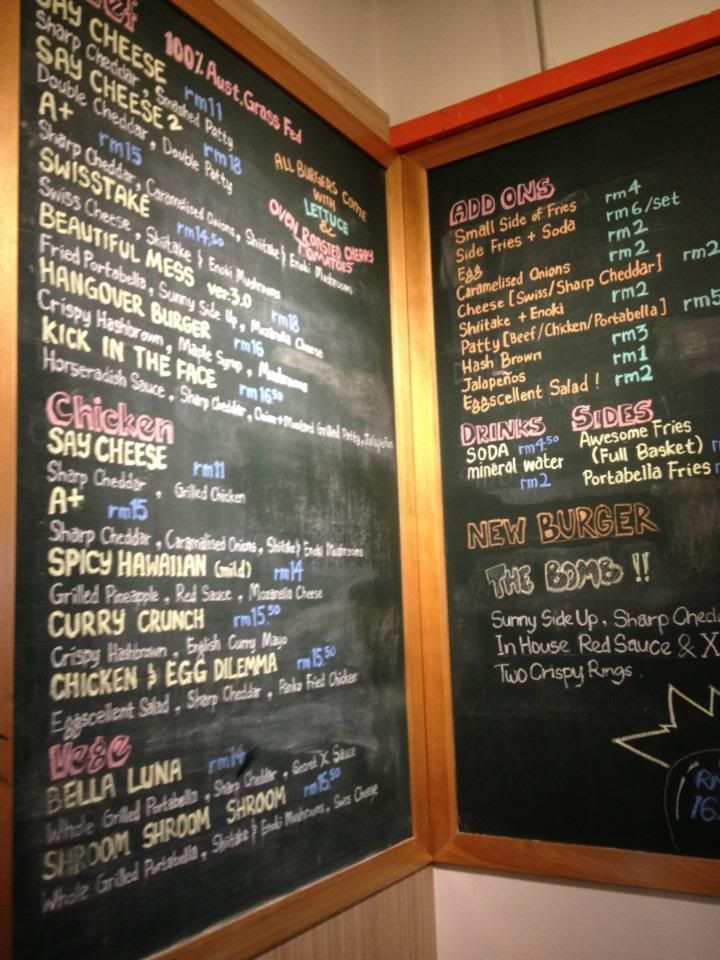 Beef
100% Aust. Grass Fed
SAY CHEESE rm11
Sharp Cheddar, Smashed Patty
SAY CHEESE 2 rm18
Double Cheddar, Double Patty
A+ rm15
Sharp Cheddar, Caramelised Onions, Shiitake & Enoki Mushrooms
SWISSTAKE rm14.50
Swiss Cheese, Shiitake & Enoki Mushrooms
BEAUTIFUL MESS ver.3.0 rm18
Fried Portabella, Sunny Side Up, Mozarella Cheese
HANGOVER BURGER rm16
Crispy Hashbrown, Maple Syrup, Mushrooms
KICK IN THE FACE rm16.50
Horseradish Sauce, Sharp Cheddar, Onion+Mustard Grilled Patty, Jalapeños
ALL BURGERS COME
WITH
LETTUCE
&
OVEN ROASTED CHERRY
TOMATOES
Chicken
SAY CHEESE rm11
Sharp Cheddar, Grilled Chicken
A+ rm15
Sharp Cheddar, Caramalised Onions, Shiitake & Enoki Mushrooms
SPICY HAWAIIAN (mild) rm14
Grilled Pineapple, Red Sauce, Mozarella Cheese
CURRY CRUNCH rm15.50
Crispy Hashbrown, English Curry Mayo
CHICKEN & EGG DILEMMA rm15.50
Eggscellent Salad, Sharp Cheddar, Panko Fried Chicken
Vege
BELLA LUNA rm14
Whole Grilled Portabella, Sharp Cheddar, Secret X Sauce
SHROOM SHROOM SHROOM rm15.50
Whole Grilled Portabella, Shiitake & Enoki Mushrooms, Swiss Cheese
ADD ONS
Small Side of Fries rm4
Side Fries + Soda rm6/set
Egg rm2
Caramelised Onions rm2
Cheese [Swiss/Sharp Cheddar] rm2
Shiitake + Enoki rm2
Patty [Beef/Chicken/Portabella] rm5
Hash Brown rm3
Jalapeños rm1
Eggscellent Salad! rm2
DRINKS
SODA rm4.50
mineral water
rm2
SIDES
Awesome Fries
(Full Basket)
Portabella Fries
NEW BURGER
THE BOMB !!
Sunny Side Up, Sharp
In House Red Sauce & X
Two Crispy Rings